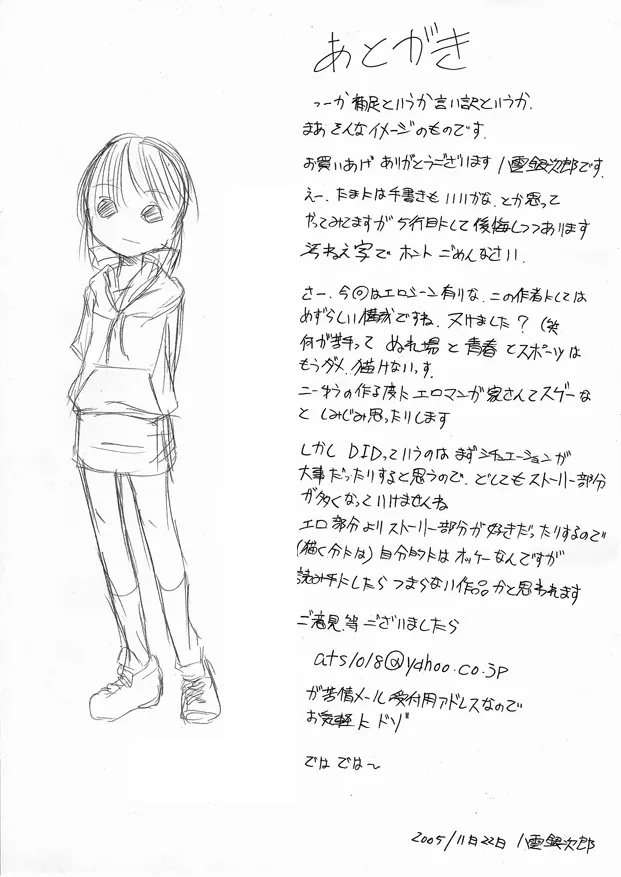 あとがき
つーか補足というか言い訳というか.
まあそんなイメージのものです.
お買いあげありがとうございます 八雲銀次郎です.
えー. たまには手書きもいいかな. とか思って
やってみてますが5行目にして後悔しつつあります
汚ねえ字でホントごめんなさい.
さー. 今回はエロシーン有りな. この作者にしては
めずらしい構成ですね. 又けました? (笑
何が苦手って ぬれ場と青春とスポーツは
もうダメ. 描けないっす.
こーゆうの作る度にエロマンガ家さんてスゲーな
と しみじみ思ったりします
しかし DIDっていうのは まずシチュエーションが
大事だったりすると思うので. どしてもストーリー部分
が多くなっていけませんね
エロ部分よりストーリー部分が好きだったりするので
(描く分には) 自分的にはオッケーなんですが
読み手にしたら つまらない作品かと思われます
ご意見. 等ございましたら
ats1018@yahoo.co.jp
が苦情メール受付用アドレスなので
お気軽に ドゾ
では では〜
2005/11月22日 八雲銀次郎